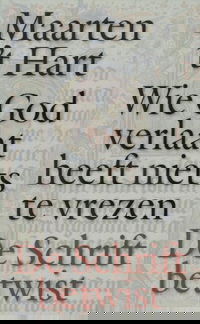 Maarten
't Hart
Wie God
verlaat
heeft niets
te vrezen
De Schrift
betwist